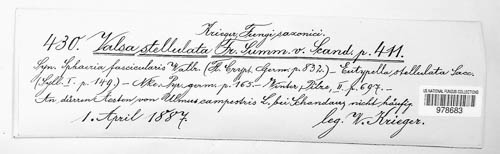 Krieger, Fungi saxonici.
430. Valsa stellulata Fr. Summ. v. Scand. p. 411.
Syn. Sphaeria fascicularis Wallr. (Fl. Crypt. Germ. p. 832.) – Eutypella stellulata Sacc.
(Syll. I. p. 149) – Nke. Pyr. germ. p. 165. – Winter, Pilze, II p. 697. –
An dürren Aesten von Ulmus campestris L. bei Schandau, nicht häufig
1. April 1887. leg. W. Krieger.
US NATIONAL FUNGUS COLLECTIONS
978683